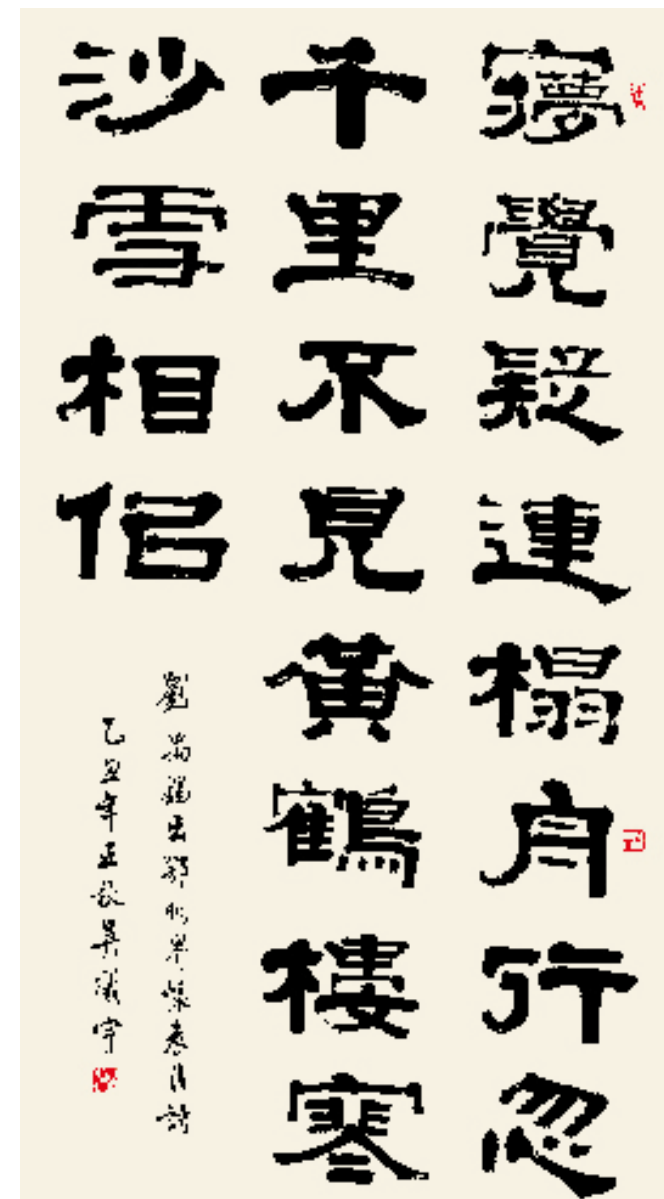 㝱覺疑連榻舟行忽
千里不見黃鶴樓寒
沙雪相佀
劉禹錫出鄂州界懷表臣詩
乙丑年孟秋吳